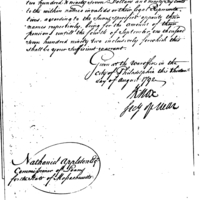 two hundred & ninety seven Dollars and ninety six Cents
to the within named invalids or their legal representa-
tives, according to the sums annexed opposite their
names respectively, being for the amount of their
pensions until the fourth of September, one thousand
seven hundred ninety two inclusively for which this
shall be your sufficient warrant.
Given at the War office in the
City of Philadelphia this
day of August 1792
HKnox
Secy of War
Nathaniel Appleton Esqr
Commissioner of Loans
for the State of Massachusetts